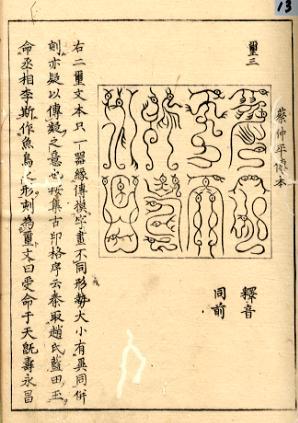 13
璽三
蔡仲平傳本
釋音
同前
右二璽文本只一器緣傳模字畫不同形勢大小有異同併
刻亦疑以傳疑之意也按集古印格序云秦取趙氏藍田玉
命丞相李斯作魚鳥之形刻為璽文曰受命于天旣壽永昌